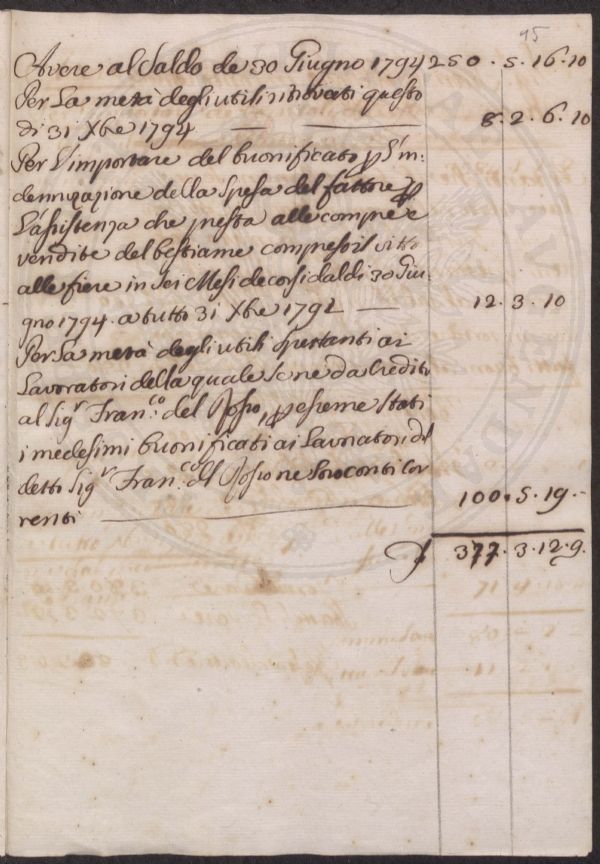 95
Avere al Saldo de 30 Giugno 1794 250. 5. 16. 10
Per La metà degli utili ritrovati questo
di 31 Xbre 1794 — — 8. 2. 6. 10
Per L'importare del buonificato p L'in-
dennizazione della Spesa del fattore p
L'assistenza che presta alle compre e
vendite del bestiame compreso il vitto
alle fiere in Sei Mesi decorsi dal di 30 Giu-
gno 1794. a tutto 31 Xbre 1794 — 12. 3. 10
Per La metà degli utili Spettanti ai
Lavoratori della quale Se ne da Credito
al Sig.r Fran.co del Rosso, p esserne Stati
i medesimi buonificati ai Lavoratori dal
detto Sig.r Fran.co del Rosso ne Loro conti Cor
renti — 100. 5. 19. -
377. 3. 12. 9.